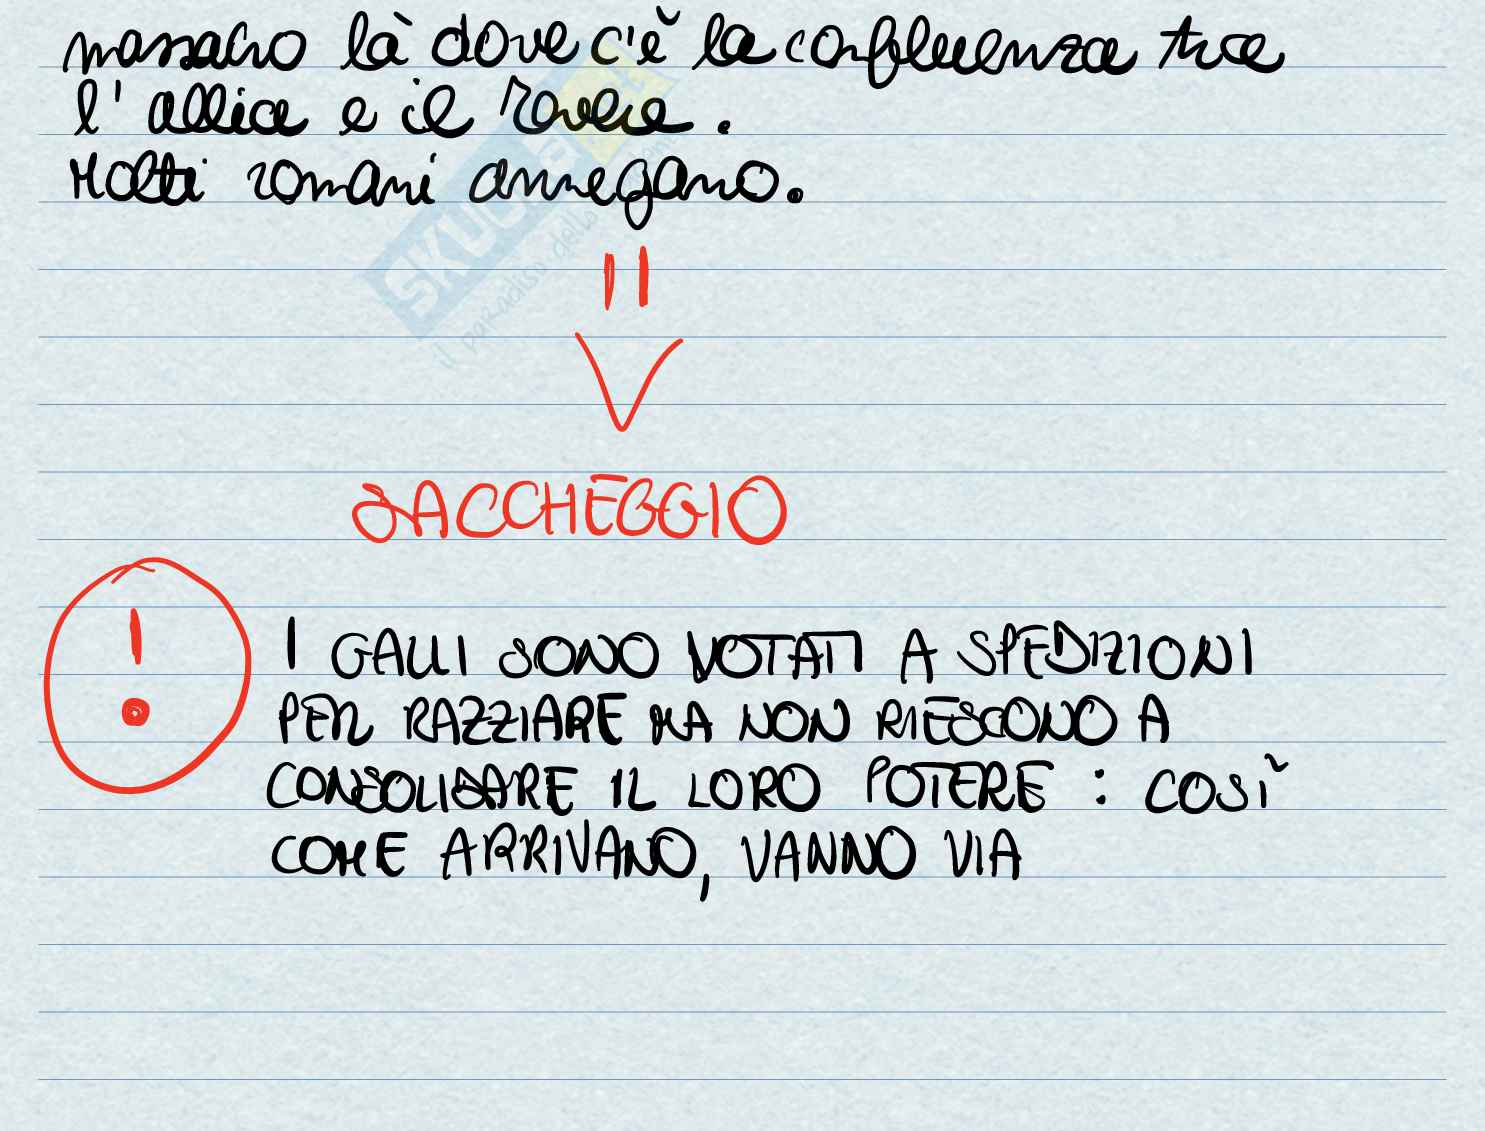 massacro là dove c'è la confluenza tra
l'allia e il Tevere.
Molti romani annegano.
SACCHEGGIO
!
I GALLI SONO VOTATI A SPEDIZIONI
PER RAZZIARE MA NON RIESCONO A
CONSOLIDARE IL LORO POTERE : COSÌ
COME ARRIVANO, VANNO VIA
SKUOLA.net
il paradiso dello